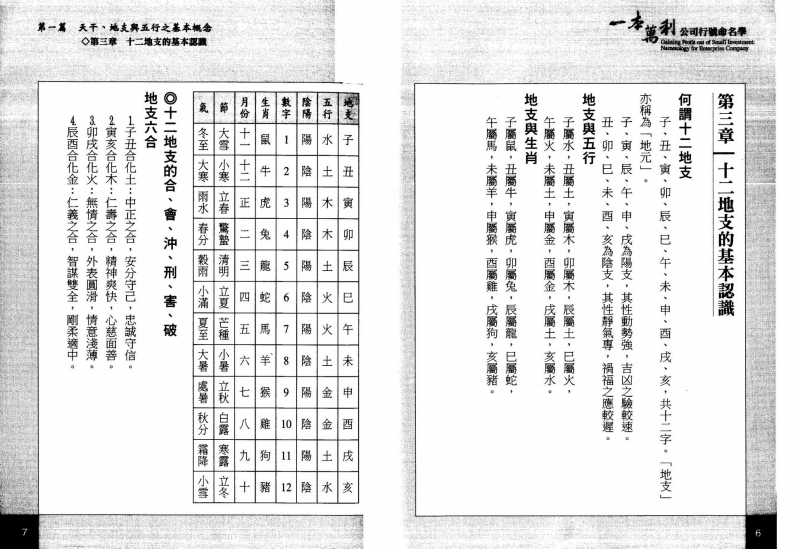 一本萬利 公司行號命名學
Gaining Profit out of Small Investment:
Numerology for Enterprise Company
第三章 十二地支的基本認識
何謂十二地支
子、丑、寅、卯、辰、巳、午、未、申、酉、戌、亥，共十二字。「地支」
亦稱為「地元」。
子、寅、辰、午、申、戌為陽支，其性動勢強，吉凶之驗較速。
丑、卯、巳、未、酉、亥為陰支，其性靜氣專，禍福之應較遲。
地支與五行
子屬水，丑屬土，寅屬木，卯屬木，辰屬土，巳屬火，
午屬火，未屬土，申屬金，酉屬金，戌屬土，亥屬水。
地支與生肖
子屬鼠，丑屬牛，寅屬虎，卯屬兔，辰屬龍，巳屬蛇，
午屬馬，未屬羊，申屬猴，酉屬雞，戌屬狗，亥屬豬。
6
第一篇 天干、地支與五行之基本概念
◇第三章 十二地支的基本認識
地支 五行 陰陽 數字 生肖 月份 節 氣
子 水 陽 1 鼠 十一 大雪 冬至
丑 土 陰 2 牛 十二 小寒 大寒
寅 木 陽 3 虎 正 立春 雨水
卯 木 陰 4 兔 二 驚蟄 春分
辰 土 陽 5 龍 三 清明 穀雨
巳 火 陰 6 蛇 四 立夏 小滿
午 火 陽 7 馬 五 芒種 夏至
未 土 陰 8 羊 六 小暑 大暑
申 金 陽 9 猴 七 立秋 處暑
酉 金 陰 10 雞 八 白露 秋分
戌 土 陽 11 狗 九 寒露 霜降
亥 水 陰 12 豬 十 立冬 小雪
◎十二地支的合、會、沖、刑、害、破
地支六合
1.子丑合化土：中正之合，安分守己，忠誠守信。
2.寅亥合化木：仁壽之合，精神爽快，心慈面善。
3.卯戌合化火：無情之合，外表圓滑，情意淺薄。
4.辰酉合化金：仁義之合，智謀雙全，剛柔適中。
7